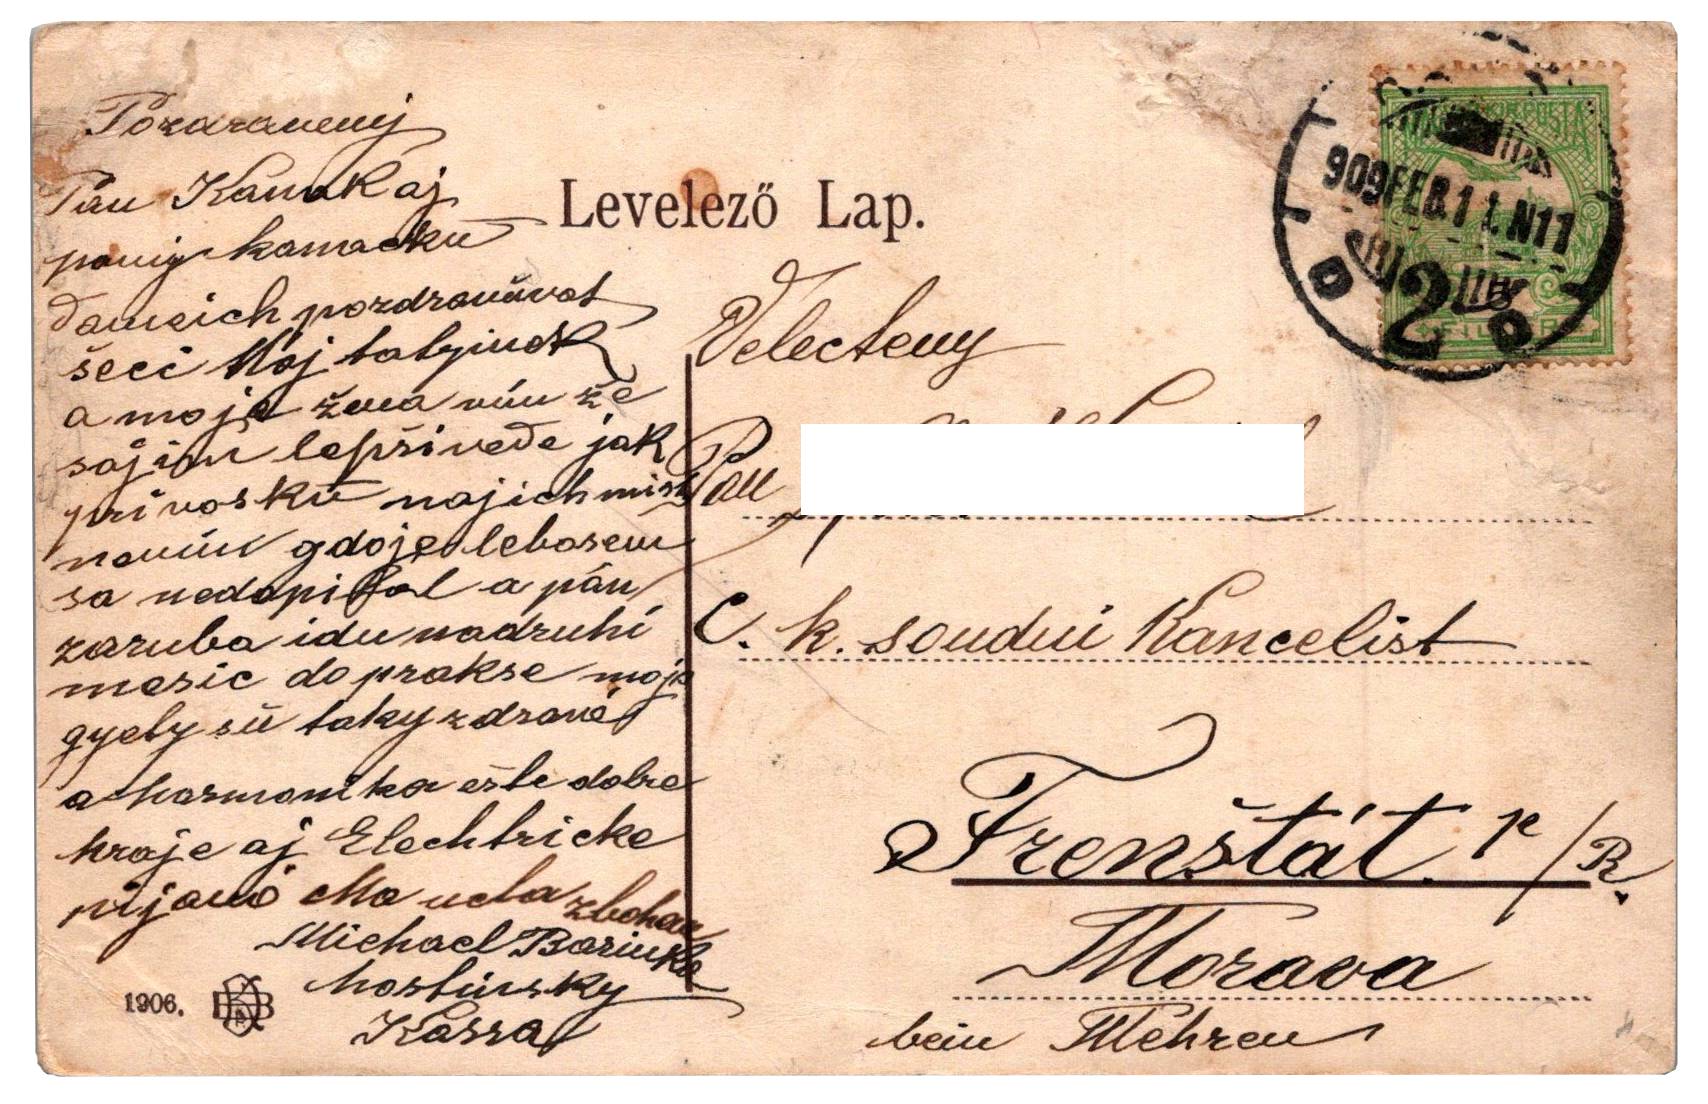 Pozdravenij
Pan Kamakaj
panij kamacku
dameich pozdravúvat
šeci Moj tatyinek
a moja žena nún že
sajim lepši vede jak
pri vosku najich mist
novín gdoje lebosem
sa nedopisal a pán
zaruba idu nadruhi
mesic do prakse moje
gyeby sú taky zdravé
a harmonika ešte dobre
hraje aj Elechtricke
pijanó Ma ucta zbohem
Michael Barinka
hostinsky
Kassa
1906.
Levelező Lap.
909 FEB. 11. N11
2
FILLÉR
Velecteny
Pan
C. k. soudni Kancelist
Frenštát p/R.
Morava
bein Mehren